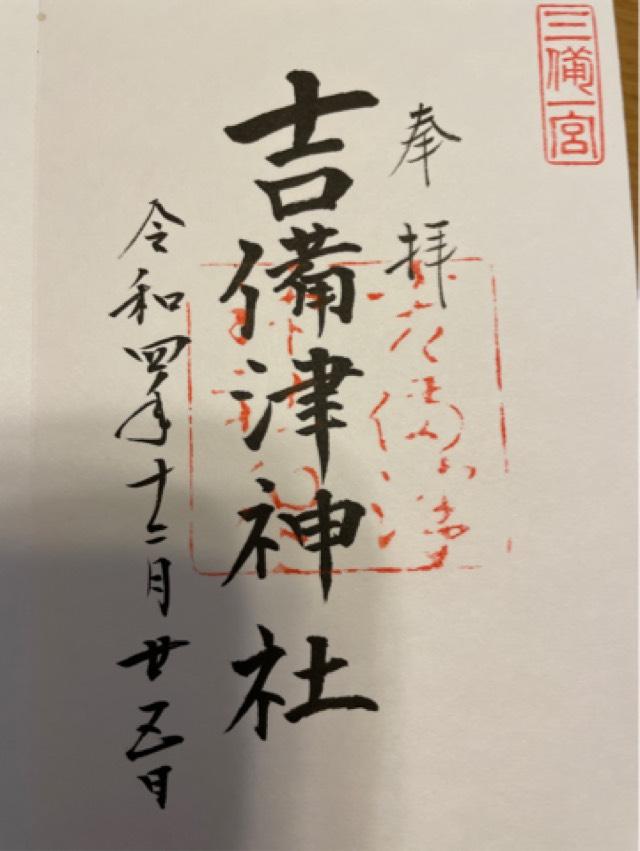 三備一宮
奉拝
吉備津神社
令和四年十二月廿五日